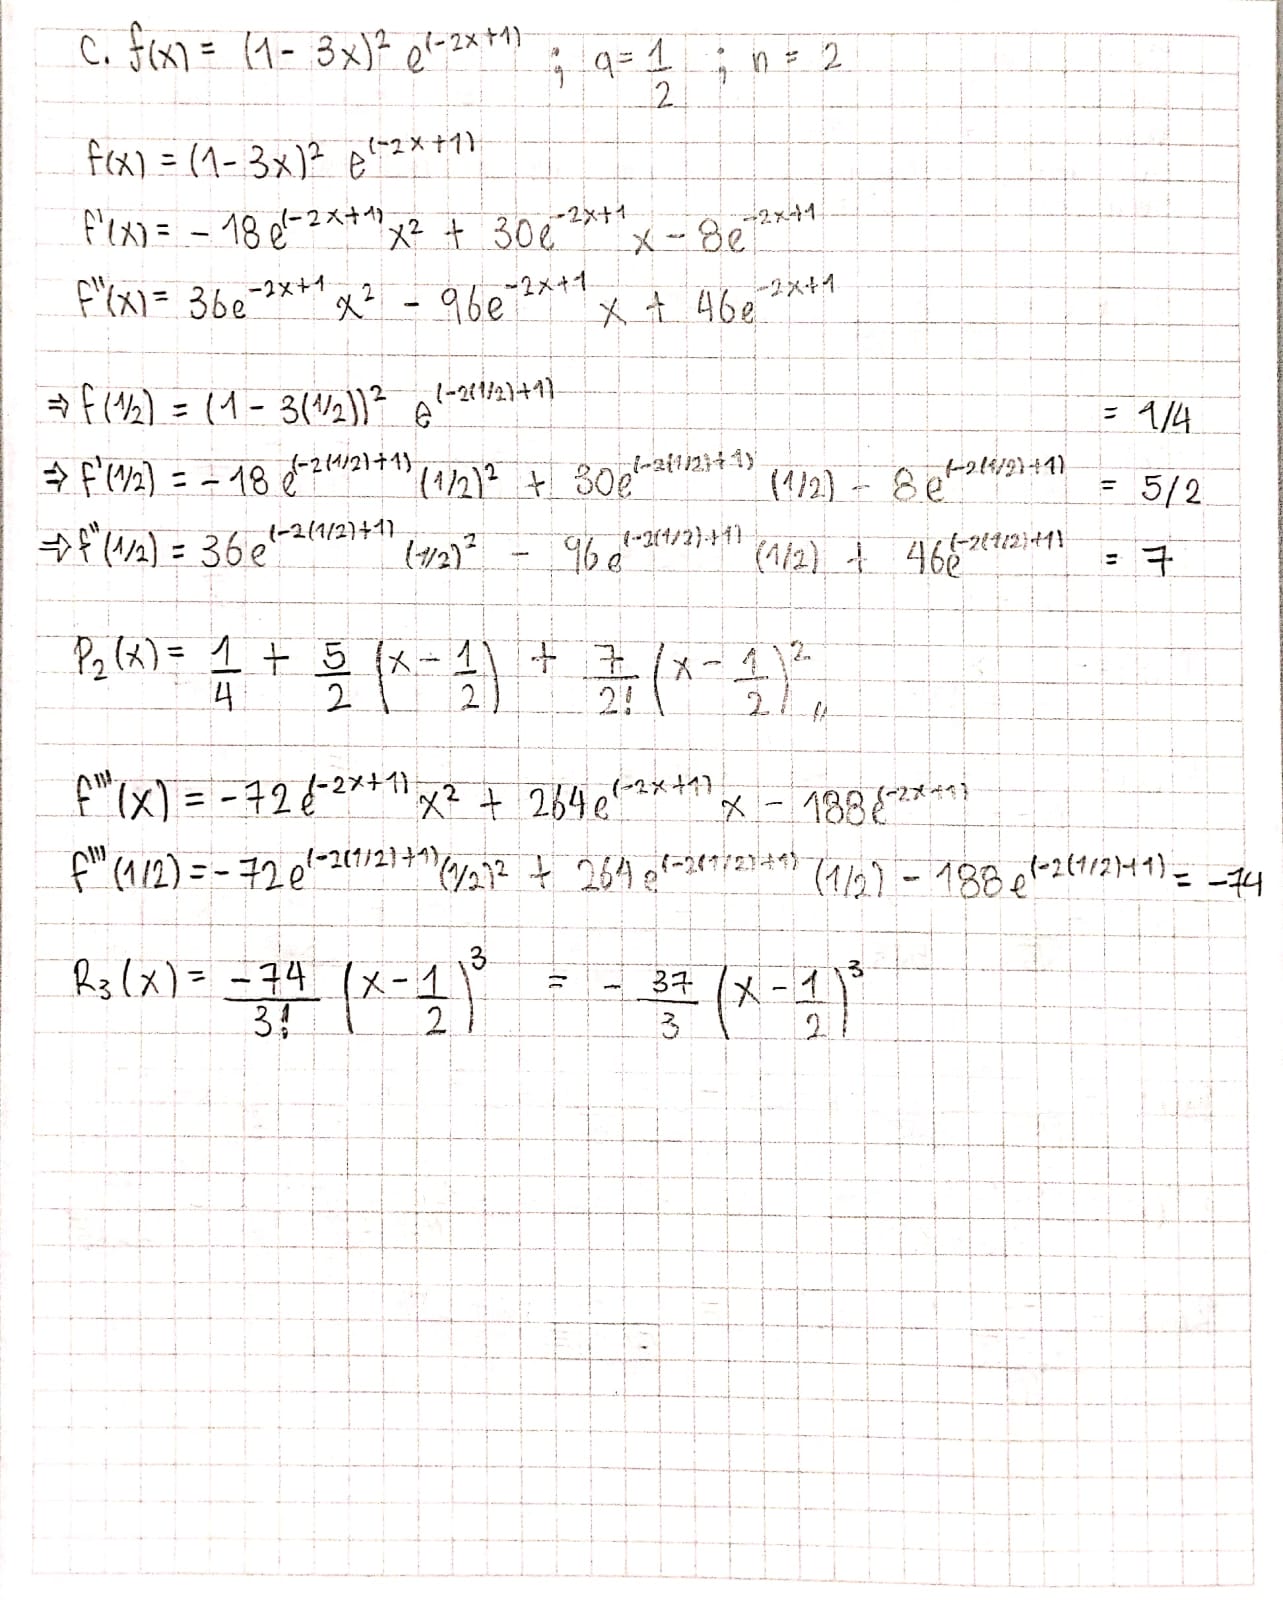 C. f(x) = (1 - 3x)² e^(-2x+1) ; a = 1/2 ; n = 2
f(x) = (1 - 3x)² e^(-2x+1)
f'(x) = -18e^(-2x+1) x² + 30e^-2x+1 x - 8e^-2x+1
f''(x) = 36e^-2x+1 x² - 96e^-2x+1 x + 46e^-2x+1
⇒ f(1/2) = (1 - 3(1/2))² e^(-2(1/2)+1) = 1/4
⇒ f'(1/2) = -18e^(-2(1/2)+1) (1/2)² + 30e^(-2(1/2)+1) (1/2) - 8e^(-2(1/2)+1) = 5/2
⇒ f''(1/2) = 36e^(-2(1/2)+1) (1/2)² - 96e^(-2(1/2)+1) (1/2) + 46e^(-2(1/2)+1) = 7
P₂(x) = 1/4 + 5/2 (x - 1/2) + 7/2! (x - 1/2)² //
f'''(x) = -72e^(-2x+1) x² + 264e^(-2x+1) x - 188e^(-2x+1)
f'''(1/2) = -72e^(-2(1/2)+1) (1/2)² + 264e^(-2(1/2)+1) (1/2) - 188e^(-2(1/2)+1) = -74
R₃(x) = -74/3! (x - 1/2)³ = - 37/3 (x - 1/2)³